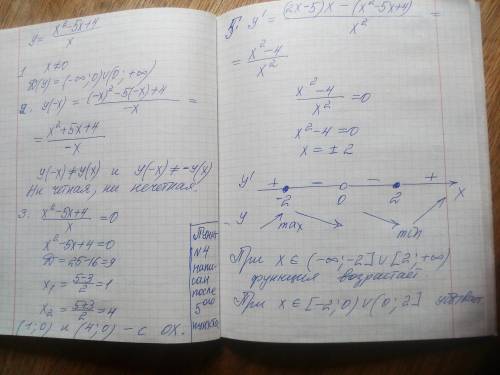 y = x²-5x+4 / x
1. x≠0
D(y) = (-∞; 0)∪(0; +∞)
2. y(-x) = (-x)²-5(-x)+4 / -x =
= x²+5x+4 / -x
y(-x)≠y(x) и y(-x)≠-y(x)
Ни чётная, ни нечётная.
3. x²-5x+4 / x = 0
x²-5x+4=0
D=25-16=9
x₁ = 5-3 / 2 = 1
x₂ = 5+3 / 2 = 4
(1;0) и (4;0) – с OX.
Пункт
№4
напи-
сан
после
5ого
пункта
5. y' = (2x-5)x - (x²-5x+4) / x² =
= x²-4 / x²
x²-4 / x² = 0
x²-4=0
x=±2
y' + - - +
-2 0 2 x
y max min
При x∈(-∞;-2]∪[2;+∞)
функция возрастает
При x∈[-2;0)∪(0;2]